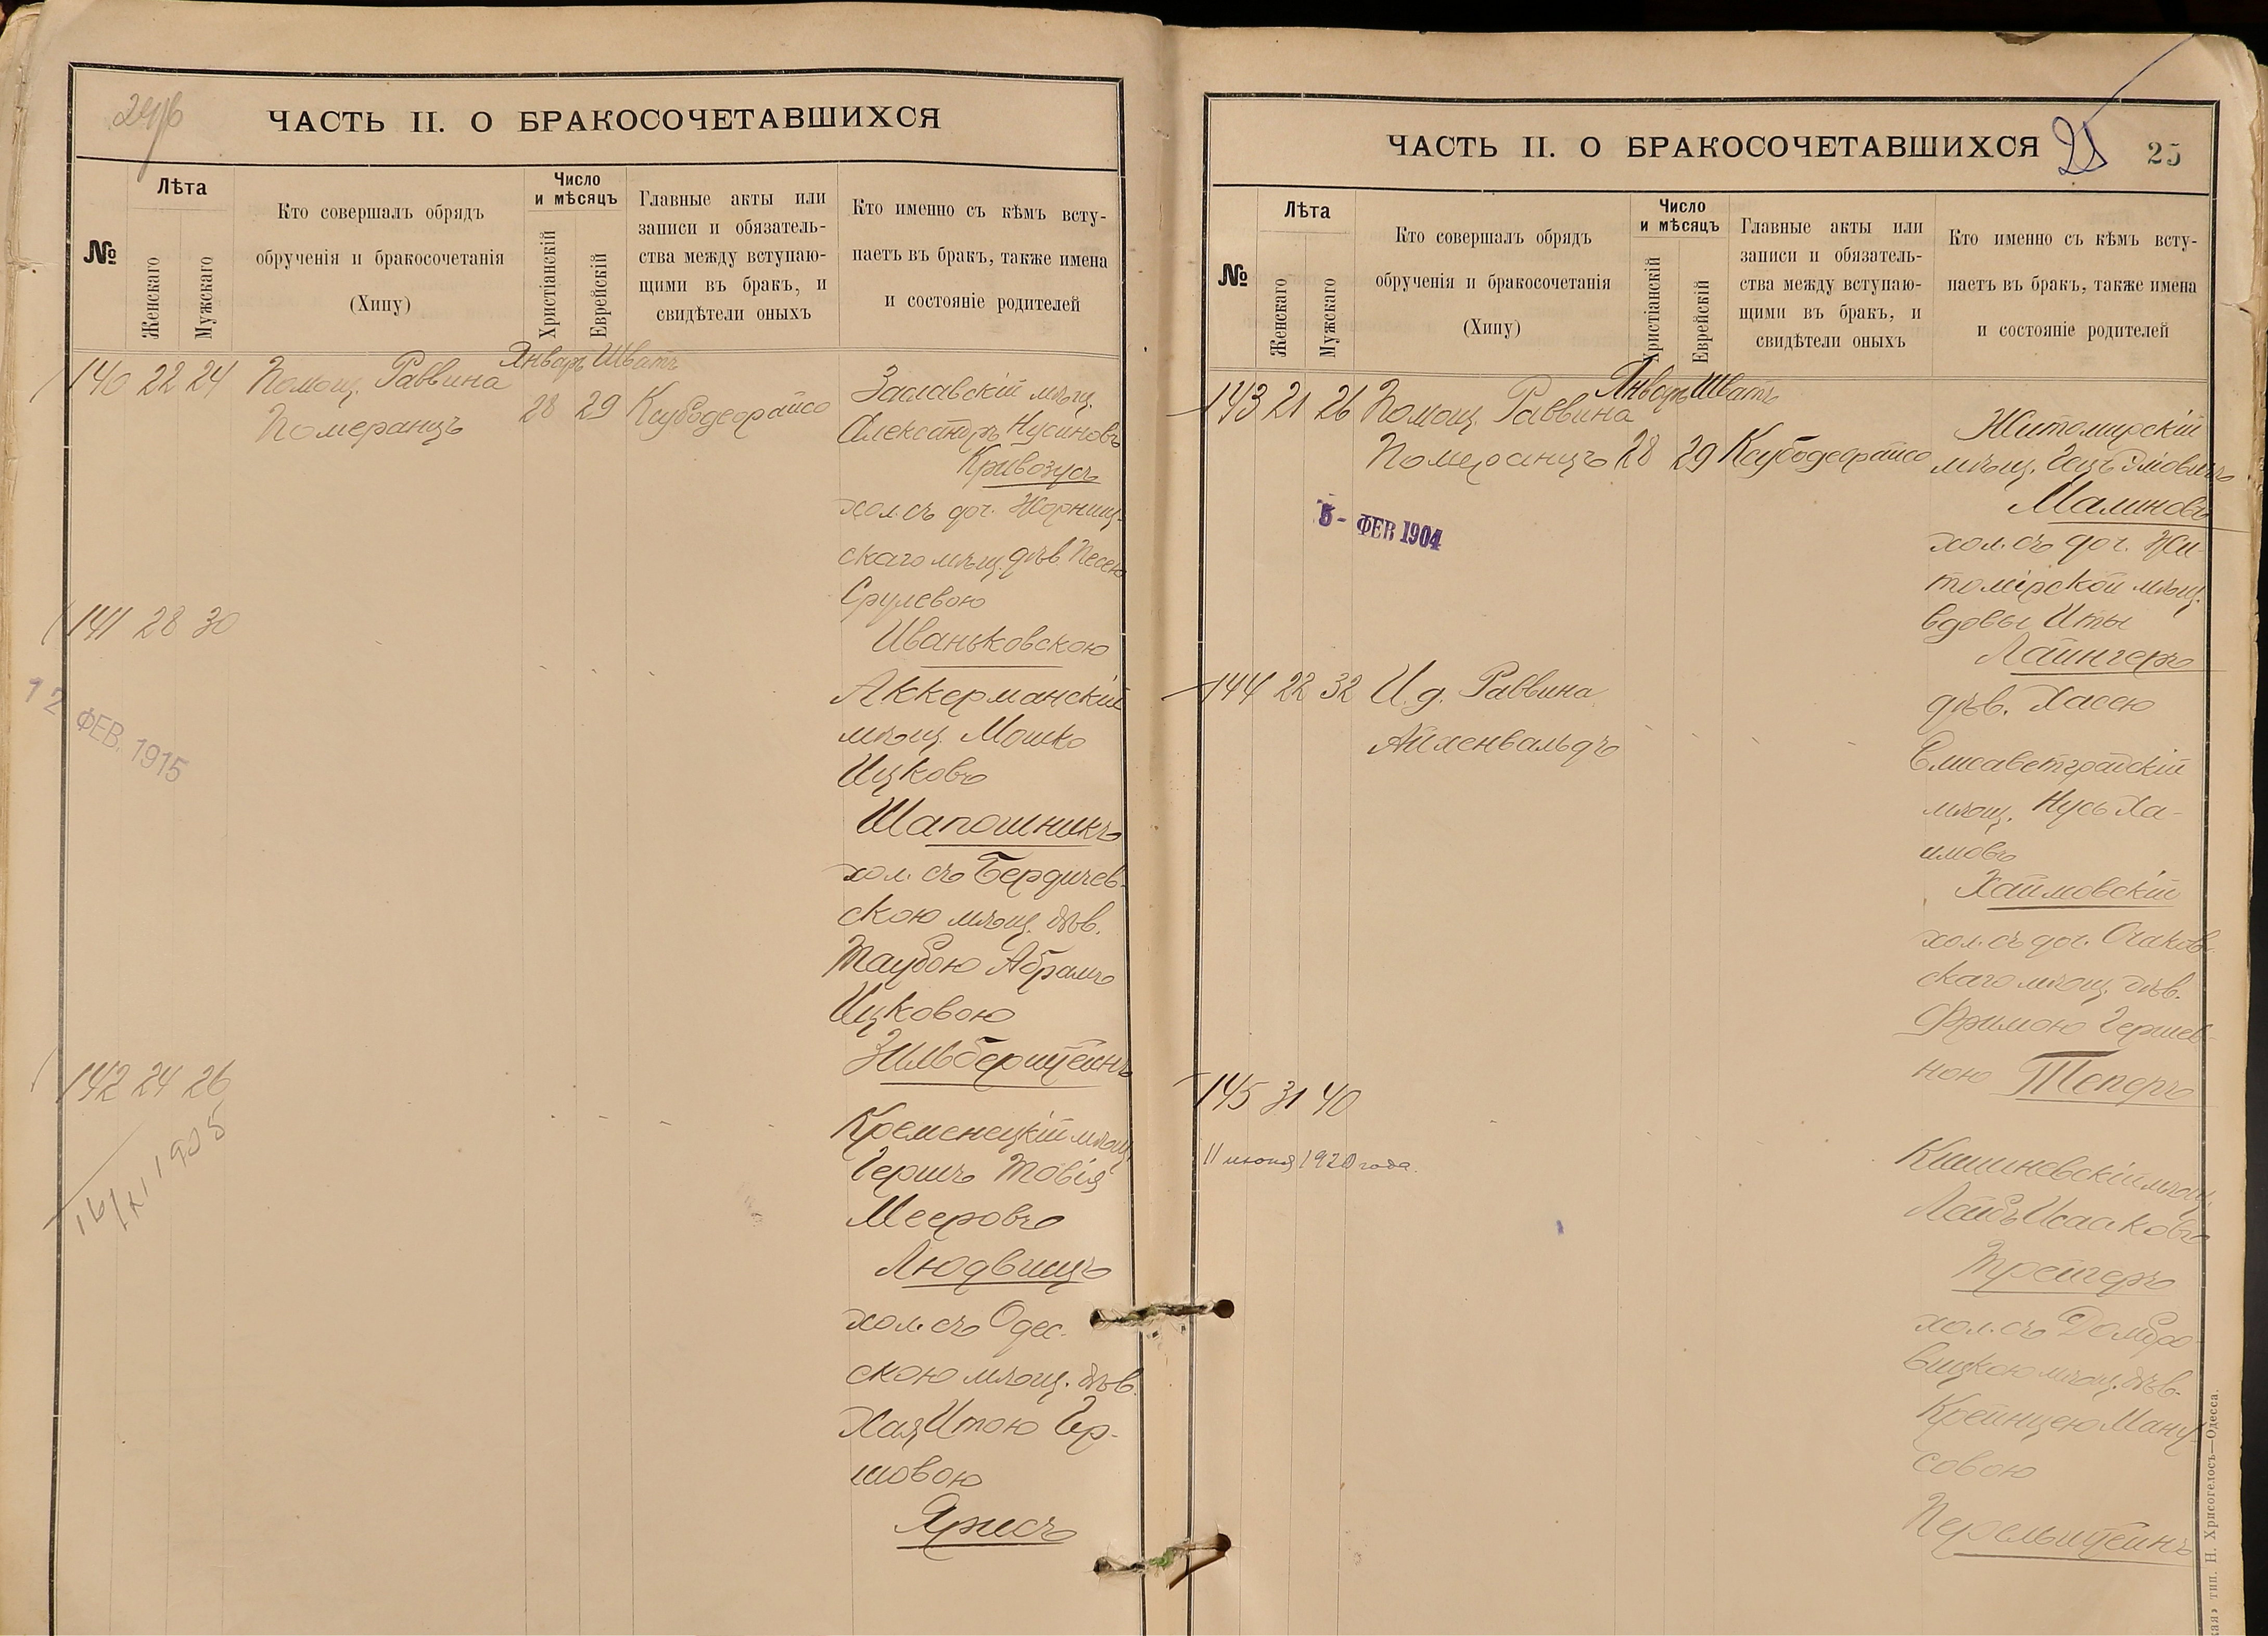 24об
ЧАСТЬ II. О БРАКОСОЧЕТАВШИХСЯ
№
Лѣта
Женскаго
Мужскаго
Кто совершалъ обрядъ
обрученія и бракосочетанія
(Хипу)
Число
и мѣсяцъ
Христіанскій
Еврейскій
Главные акты или
записи и обязатель-
ства между вступаю-
щими въ бракъ, и
свидѣтели оныхъ
Кто именно съ кѣмъ всту-
паетъ въ бракъ, также имена
и состояніе родителей
Январь Шватъ
140 22 24 Помощ. Раввина
Померанцъ
28 29 Ксубодеорайсо
Заславскій мѣщ.
Александръ Нусиновъ
Кривозусъ
хол. съ доч. Жорнищ-
скаго мѣщ. дѣв. Песею
Срулевою
Иваньковскою
141 28 30
12 ФЕВ. 1915
Аккерманскій
мѣщ. Мошко
Ицковъ
Шапошникъ
хол. съ Бердичев-
скою мѣщ. дѣв.
Таубою Абрамъ
Ицковою
Зильберштейнъ
142 24 26
16/XI 1905
Кременецкій мѣщ.
Гершъ Товія
Мееровъ
Людвицъ
хол. съ Одес-
скою мѣщ. дѣв.
Хая Итою Гер-
шовою
Ярисъ
ЧАСТЬ II. О БРАКОСОЧЕТАВШИХСЯ
25
25
№
Лѣта
Женскаго
Мужскаго
Кто совершалъ обрядъ
обрученія и бракосочетанія
(Хипу)
Число
и мѣсяцъ
Христіанскій
Еврейскій
Главные акты или
записи и обязатель-
ства между вступаю-
щими въ бракъ, и
свидѣтели оныхъ
Кто именно съ кѣмъ всту-
паетъ въ бракъ, также имена
и состояніе родителей
Январь Шватъ
143 21 26 Помощ. Раввина
Померанцъ 28 29 Ксубодеорайсо
5 - ФЕВ 1904
Житомирскій
мѣщ.
Малиновъ
хол. съ доч. Жи-
томірской мѣщ.
вдовы Иты
Лайнгеръ
дѣв. Хасею
144 22 32 И. д. Раввина
Айхенвальдъ
Елисаветградскій
мѣщ. Нусь Ха-
имовъ
Хаимовскій
хол. съ доч. Очаков-
скаго мѣщ. дѣв.
Фримою Гершев-
ною Теперъ
145 31 40
11 июня 1920 года.
Кишиневскій мѣщ.
Лейбъ Исааковъ
Трейгеръ
хол. съ Домбро-
вицкою мѣщ. дѣв.
Крейнцею Ману-
совою
Перельштейнъ
тип. Н. Хрисогелосъ—Одесса.